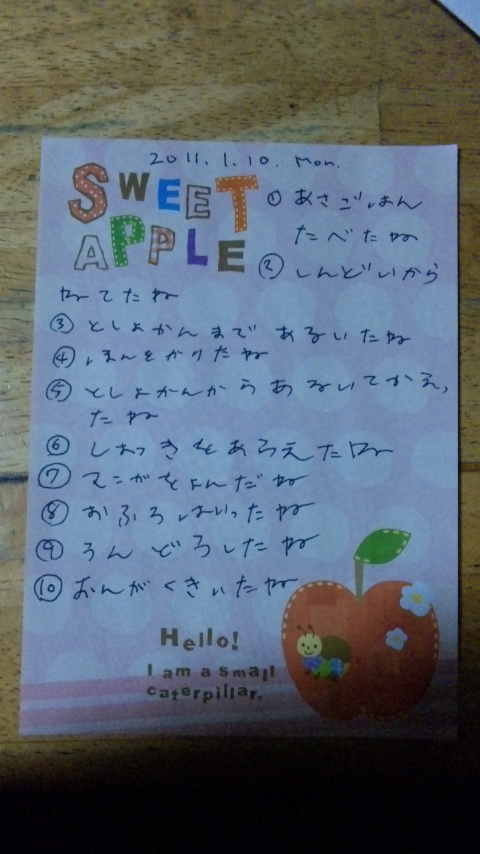 2011.1.10. Mon.
SWEET
APPLE
① あさごはん
たべたね
② しんどいから
ねてたね
③ としょかんまで あるいたね
④ ほんをかりたね
⑤ としょかんからあるいてかえっ
たね
⑥ しょっきをあらえたね
⑦ マンガをよんだね
⑧ おふろはいったね
⑨ うんどうしたね
⑩ おんがくきいたね
Hello!
I am a small
caterpillar.